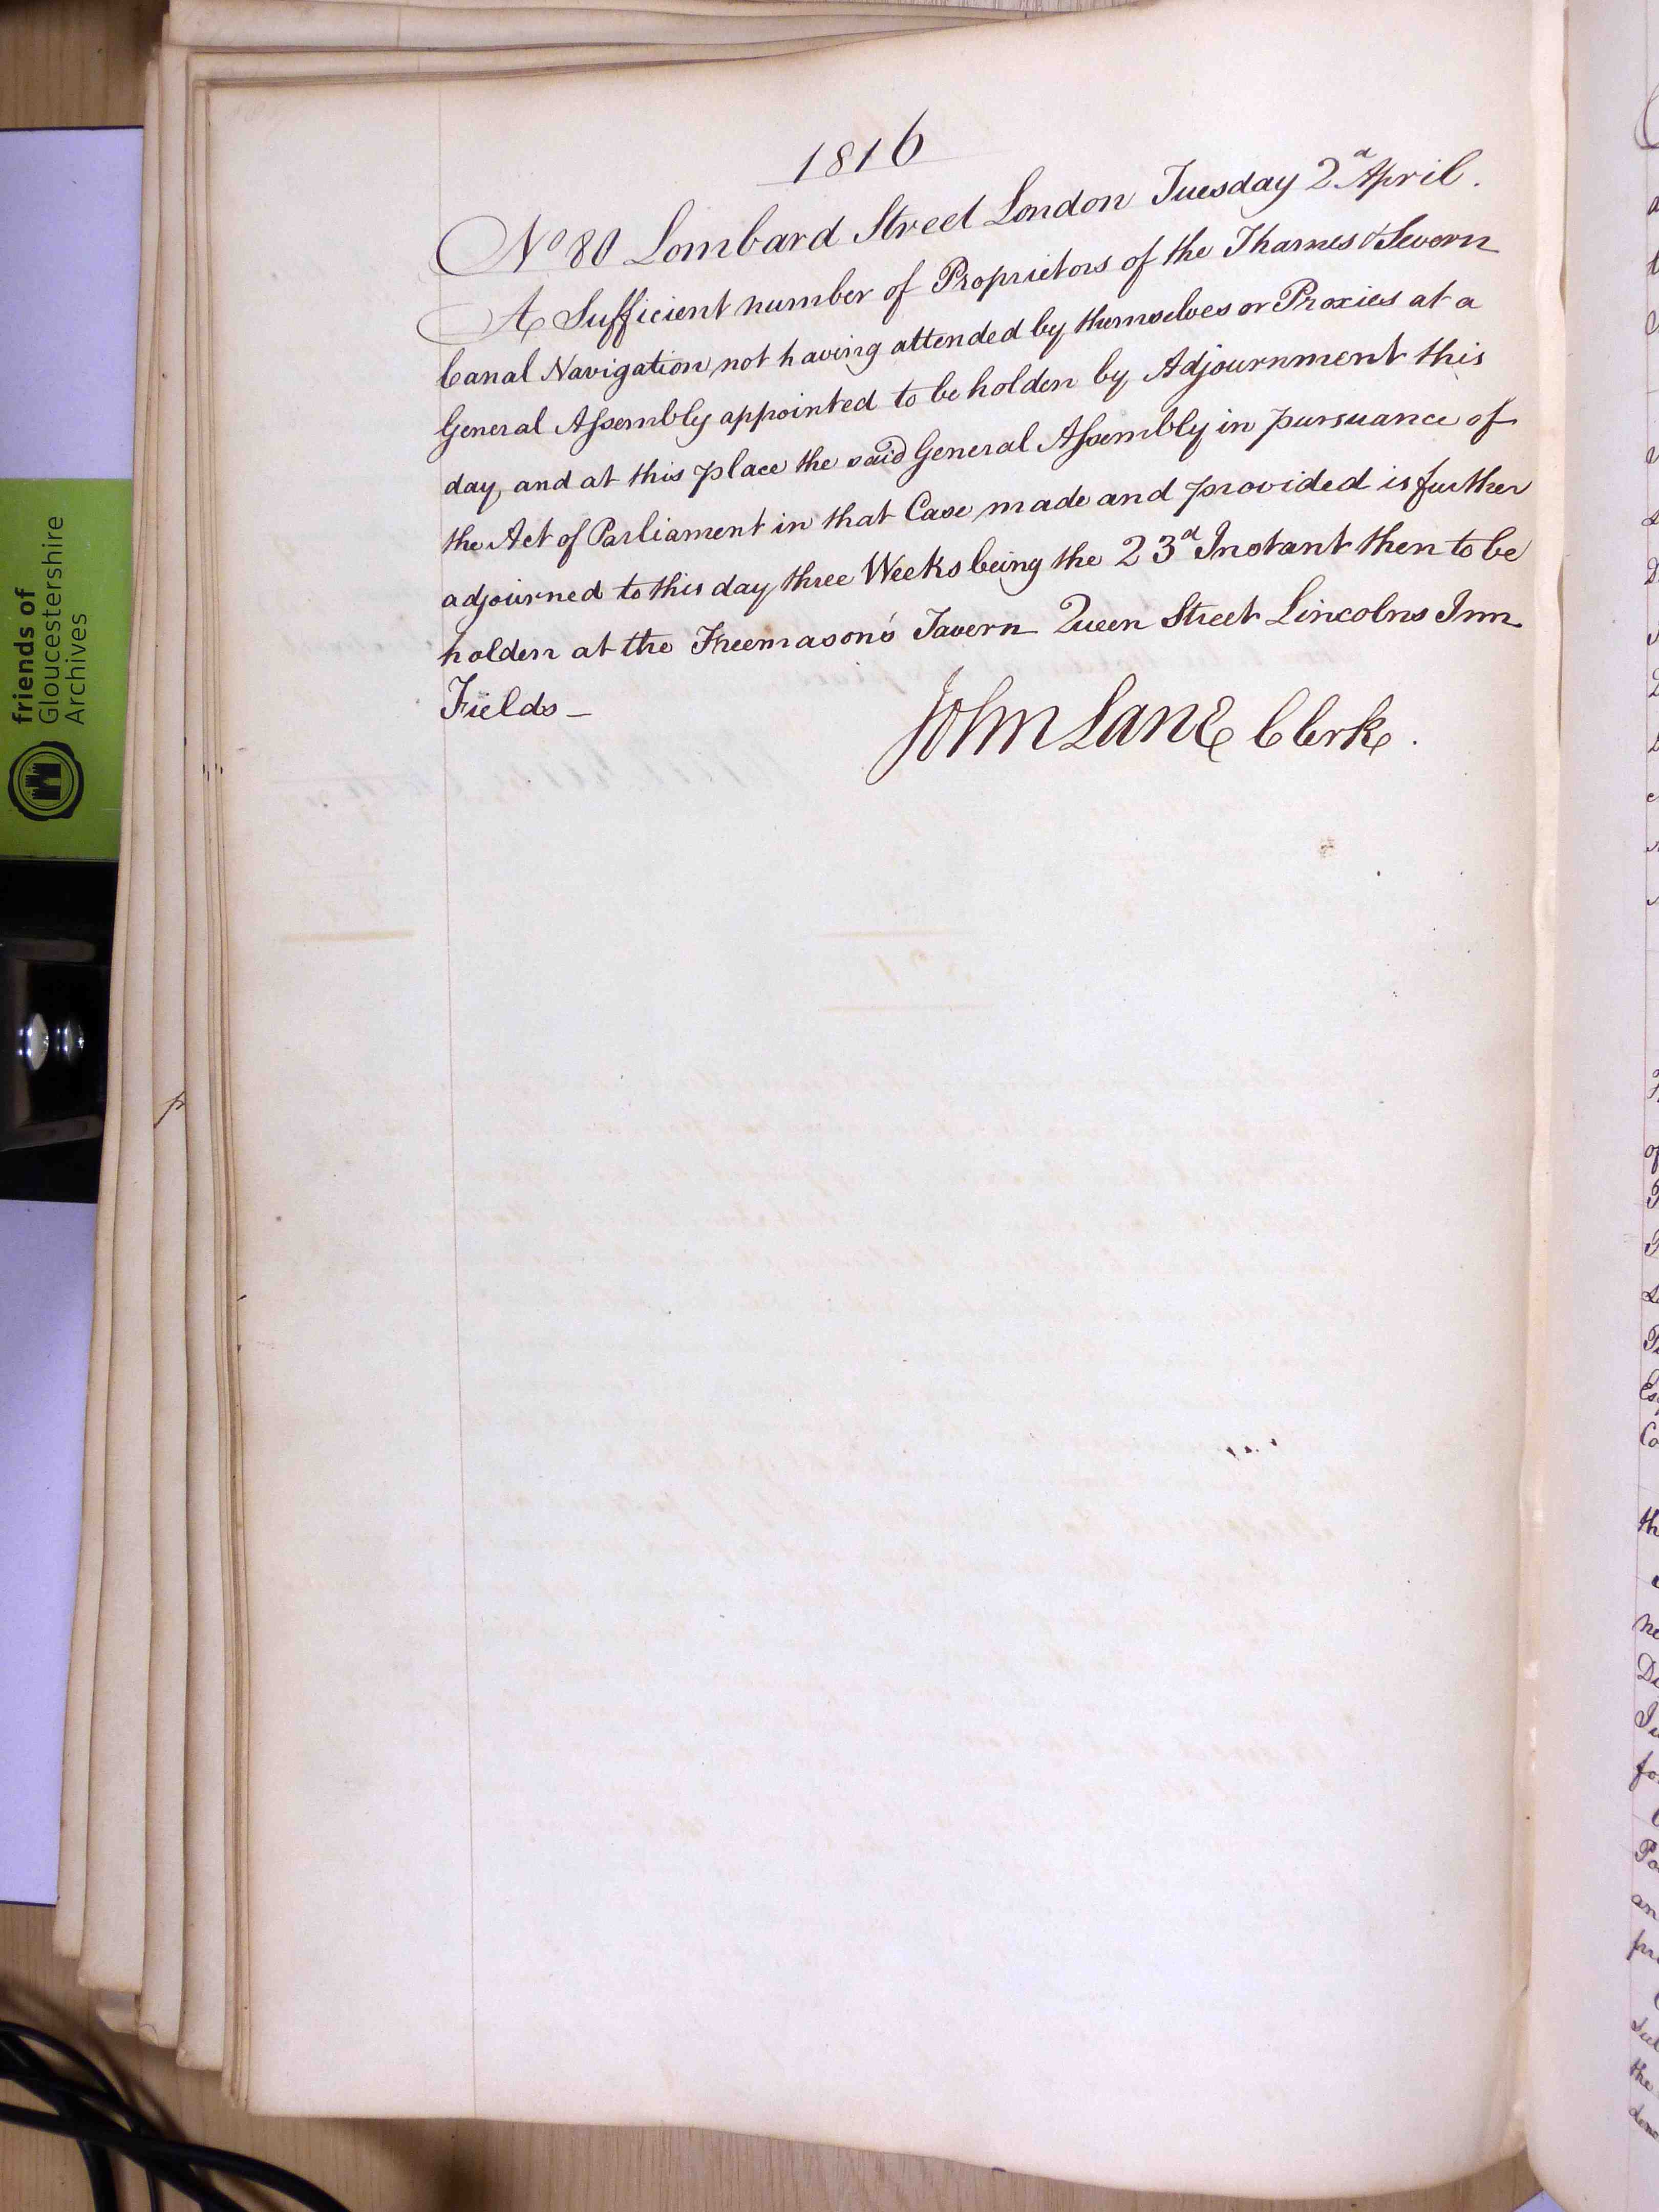 1816
No 80 Lombard Street London Tuesday 2d April.
A Sufficient number of Proprietors of the Thames & Severn
Canal Navigation not having attended by themselves or Proxies at a
General Assembly appointed to be holden by Adjournment this
day, and at this place the said General Assembly in pursuance of
the Act of Parliament in that Case made and provided is further
adjourned to this day three Weeks being the 23d Instant then to be
holden at the Freemason's Tavern Queen Street Lincolns Inn
Fields —
John Lane Clerk.
friends of
Gloucestershire
Archives